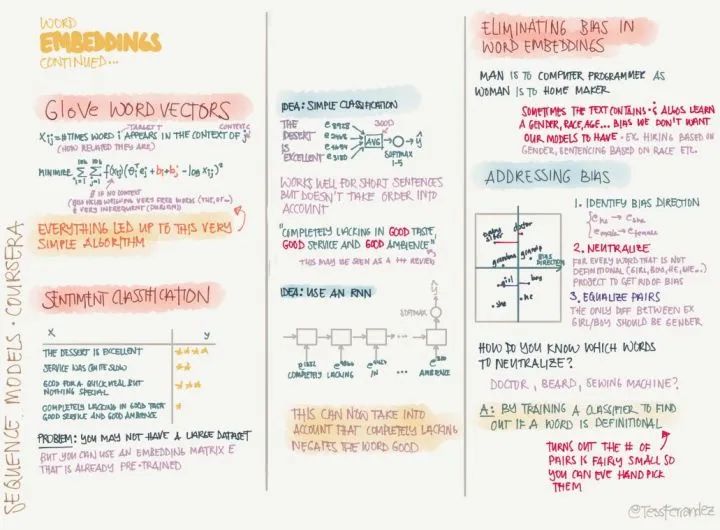 WORD
EMBEDDINGS
CONTINUED...
GloVe WORD VECTORS
TARGET
CONTEXT
Xij = # TIMES WORD i APPEARS IN THE CONTEXT OF j
(HOW RELATED THEY ARE)
MINIMIZE
= 0 IF NO CONTEXT
EVERYTHING LED UP TO THIS VERY
SIMPLE ALGORITHM
SENTIMENT CLASSIFICATION
X y
THE DESSERT IS EXCELLENT ★★★★
SERVICE WAS QUITE SLOW ★★
GOOD FOR A QUICK MEAL BUT
NOTHING SPECIAL ★★★
COMPLETELY LACKING IN GOOD TASTE
GOOD SERVICE AND GOOD AMBIENCE ★
PROBLEM: YOU MAY NOT HAVE A LARGE DATASET
BUT YOU CAN USE AN EMBEDDING MATRIX E
THAT IS ALREADY PRE-TRAINED
SEQUENCE MODELS · COURSERA
IDEA: SIMPLE CLASSIFICATION
THE e8928
DESSERT e2468
IS e4694
EXCELLENT e3180
300D
AVG
ŷ
SOFTMAX
1-5
WORKS WELL FOR SHORT SENTENCES
BUT DOESN'T TAKE ORDER INTO
ACCOUNT
"COMPLETELY LACKING IN GOOD TASTE,
GOOD SERVICE AND GOOD AMBIENCE"
THIS MAY BE SEEN AS A +++ REVIEW
IDEA: USE AN RNN
ŷ
SOFTMAX
COMPLETELY LACKING IN ... AMBIENCE
THIS CAN NOW TAKE INTO
ACCOUNT THAT COMPLETELY LACKING
NEGATES THE WORD GOOD
ELIMINATING BIAS IN
WORD EMBEDDINGS
MAN IS TO COMPUTER PROGRAMMER AS
WOMAN IS TO HOME MAKER
SOMETIMES THE TEXT CONTAINS & ALGOS LEARN
A GENDER, RACE, AGE... BIAS WE DON'T WANT
OUR MODELS TO HAVE · EX. HIRING BASED ON
GENDER, SENTENCING BASED ON RACE ETC.
ADDRESSING BIAS
doctor
grandma
grandpa
BIAS
DIRECTION
girl
boy
she
he
1. IDENTIFY BIAS DIRECTION
ehe → eshe
emale → efemale
2. NEUTRALIZE
FOR EVERY WORD THAT IS NOT
DEFINITIONAL (GIRL, BOY, HE, WE...)
PROJECT TO GET RID OF BIAS
3. EQUALIZE PAIRS
THE ONLY DIFF BETWEEN EX
GIRL/BOY SHOULD BE GENDER
HOW DO YOU KNOW WHICH WORDS
TO NEUTRALIZE?
DOCTOR, BEARD, SEWING MACHINE?
A: BY TRAINING A CLASSIFIER TO FIND
OUT IF A WORD IS DEFINITIONAL
TURNS OUT THE # OF
PAIRS IS FAIRLY SMALL SO
YOU CAN EVE HAND PICK
THEM
@TessFerrandez